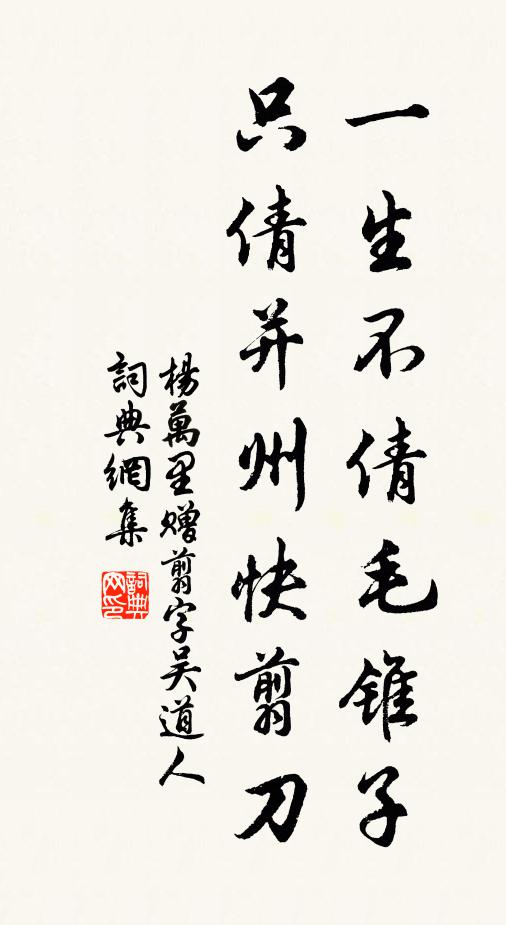 一生不倩毛錐子
只倩并州快翦刀
楊萬里贈翦字吳道人
詞典網集
詞典
网印